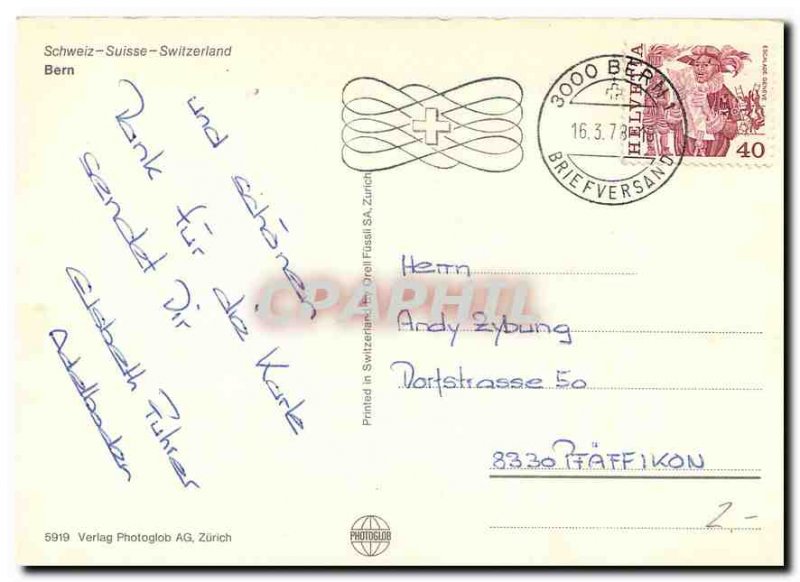 Schweiz–Suisse–Switzerland
Bern
und schönen
Dank für die Karte
sendet Dir
Elsbeth Führer
Adelboden
Printed in Switzerland by Orell Füssli SA, Zürich
3000 BERN 1
16.3.78
BRIEFVERSAND
HELVETIA
ESCALADE GENEVE
40
CPAPHIL
Herrn
Andy Zybung
Dorfstrasse 50
8330 PFÄFFIKON
2.-
5919 Verlag Photoglob AG, Zürich
PHOTOGLOB